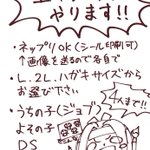 やります!!
・ネップリOK(シール印刷可)
↑画像を送るので各自で
・L.2L.ハガキサイズから
お選び下さい
・うちの子(ジョブ)
よその子
DS